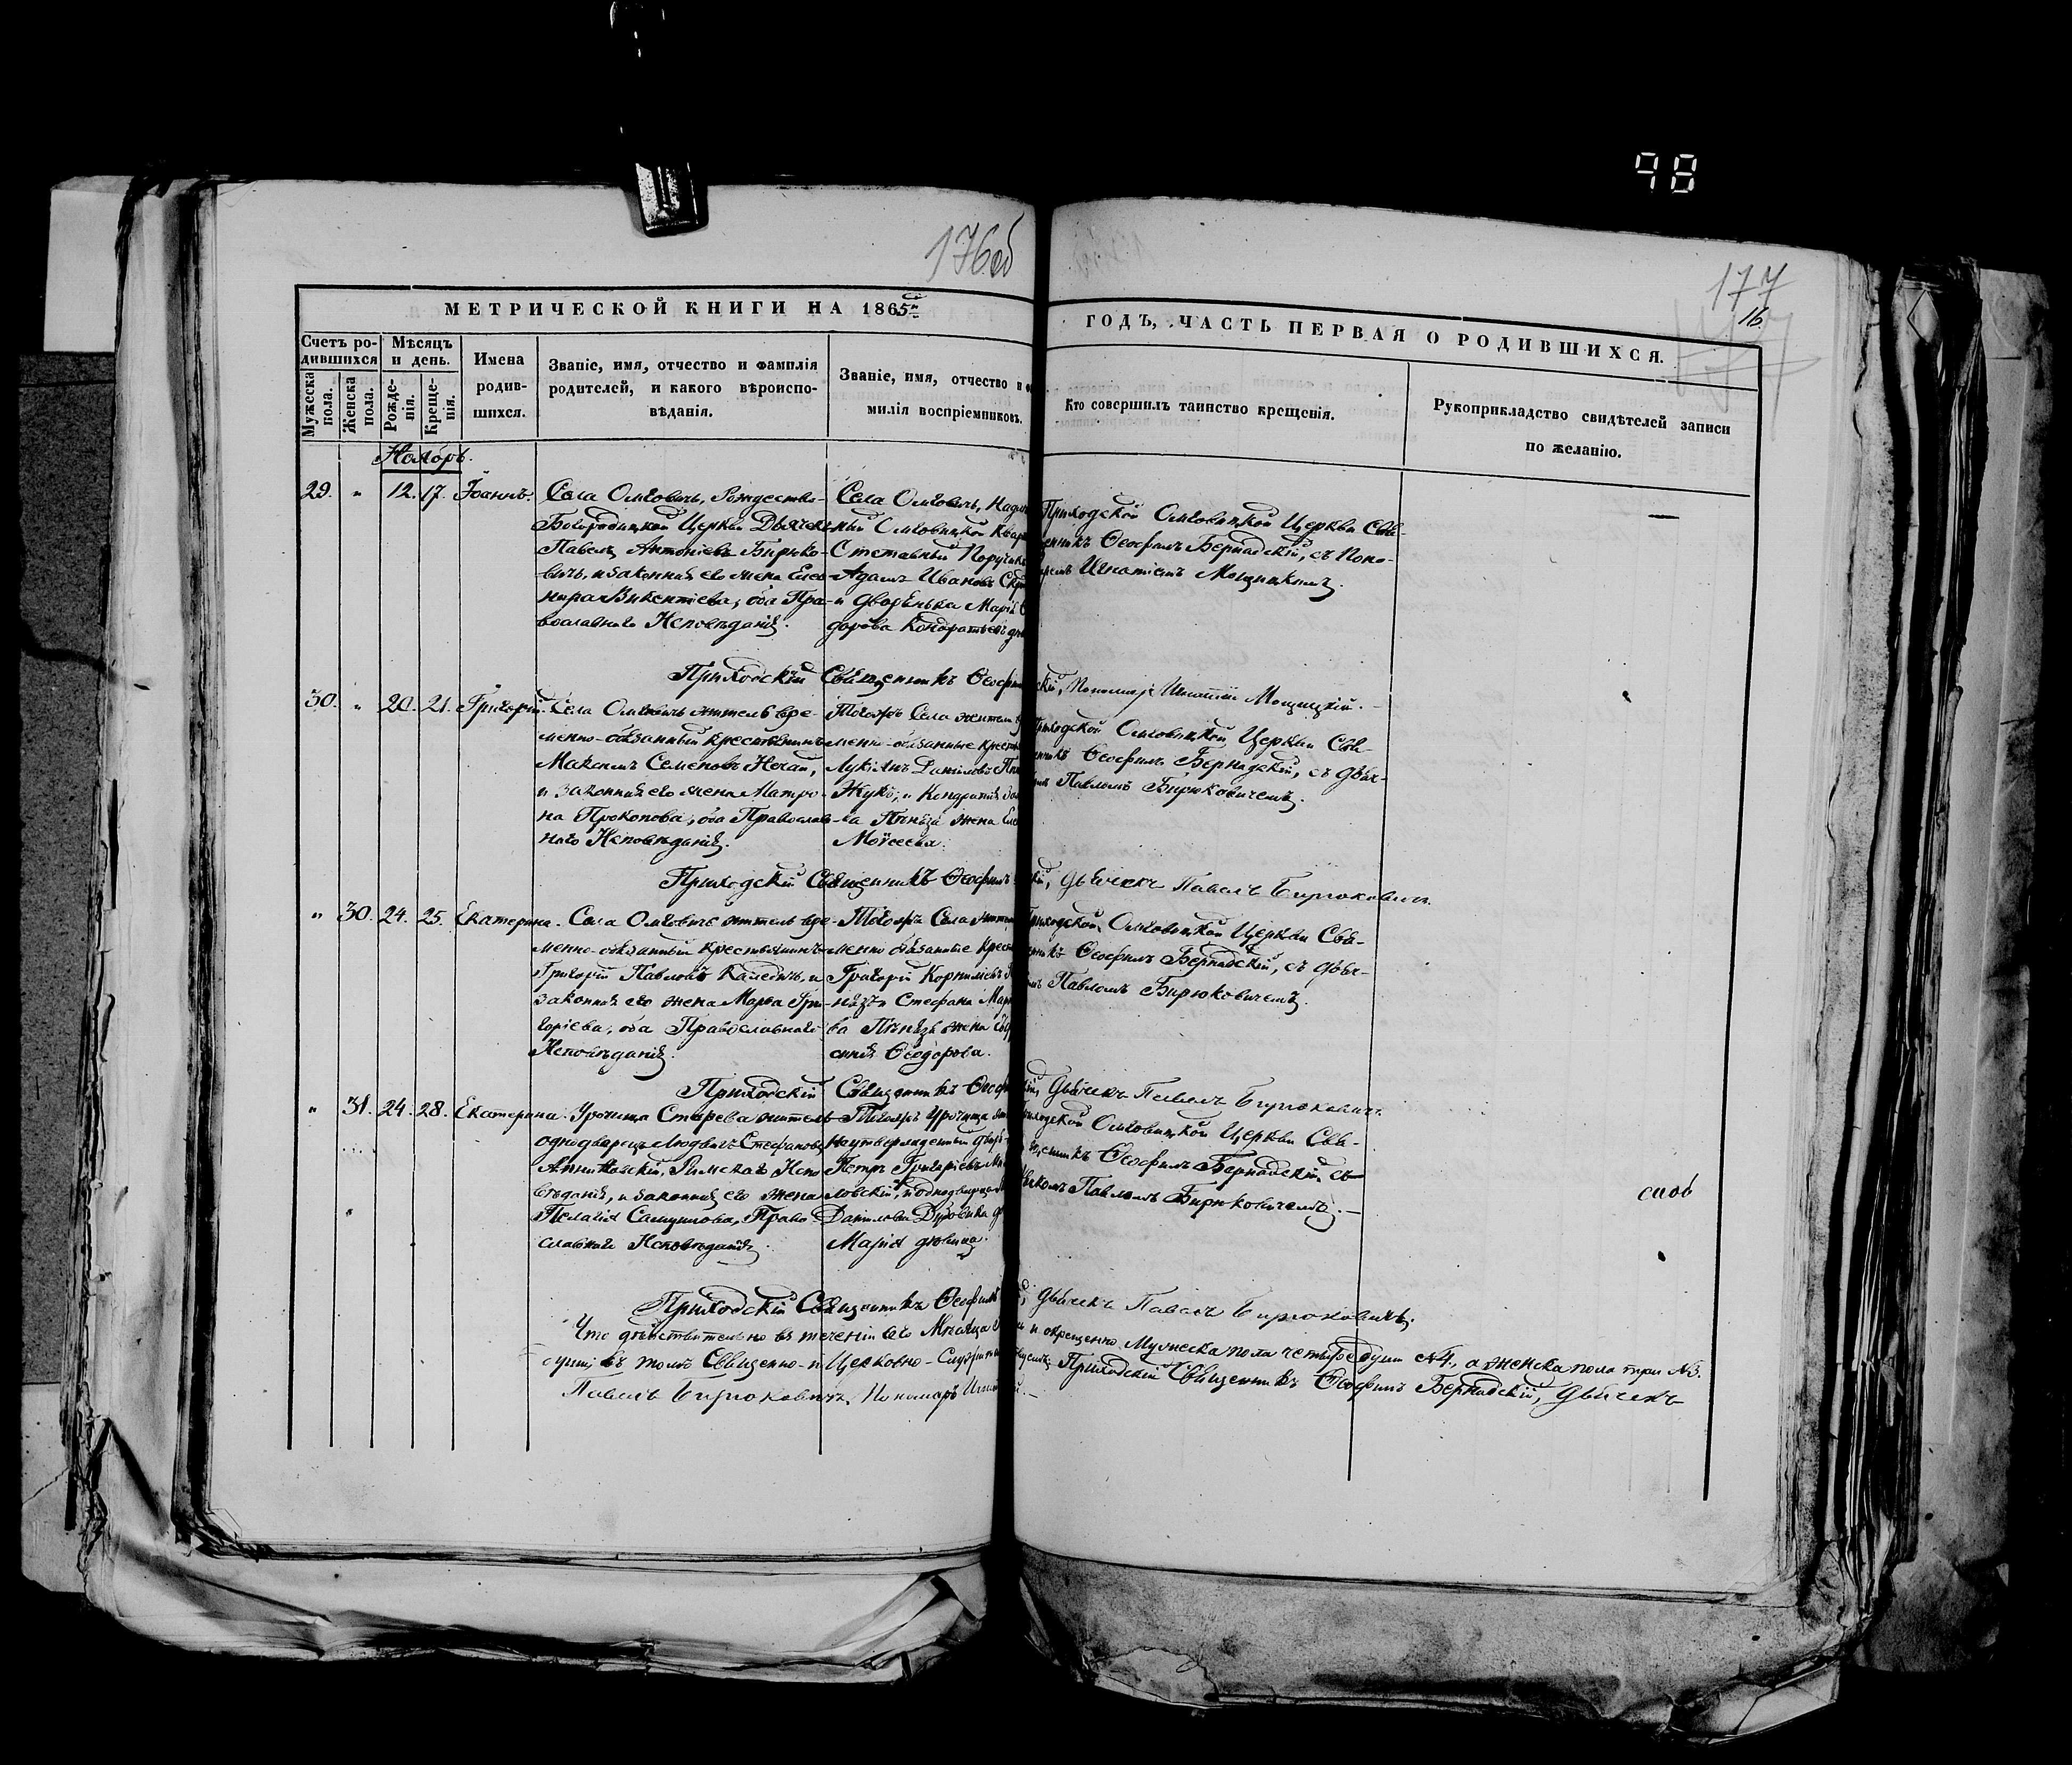 98
176об
177
16.
МЕТРИЧЕСКОЙ КНИГИ НА 1865
ГОДЪ, ЧАСТЬ ПЕРВАЯ О РОДИВШИХСЯ.
Счетъ ро-
дившихся
Мужеска
пола.
Женска
пола.
Мѣсяцъ
и день.
Рожде-
нія.
Креще-
нія.
Имена
родив-
шихся.
Званіе, имя, отчество и фамилія
родителей, и какого вѣроиспо-
вѣданія.
Званіе, имя, отчество и фа
милія воспріемниковъ.
Кто совершилъ таинство крещенія.
Рукоприкладство свидѣтелей записи
по желанію.
Ноябрь.
29. " 12. 17. Іоаннъ.
Села Омговичъ, Рождество-
Богородицкой Церкви Дьячекъ
Павелъ Антоніевъ Бирюко-
вичъ, и законная его жена
Викентіева, оба Пра-
вославнаго Исповѣданія.
Села Омговичъ,
Омговицкой
Отставный Поручикъ
Адамъ Ивановъ
и дворянка Марія
дорова Кондратьевъ
Приходской Омговицкой Церкви Свя-
щенникъ Ѳеофилъ Бернадскій, съ Поно-
маремъ Игнатіемъ Мощицкимъ.
Приходскій Священникъ Ѳеофи
скій, Пономарь Игнатій Мощицкій.
30. " 20. 21. Григорій.
Села Омговичъ житель вре-
менно-обязанный крестьянинъ
Максимъ Семеновъ Нечай,
и законная его жена Матро-
на Прокопова, оба Православ-
наго Исповѣданія.
Тогожъ Села жители
менно-обязанные крест
Лукіянъ Даниловъ
Жукъ, и Кондратія
ва Пѣнязя жена
Моисеева.
Приходской Омговицкой Церкви Свя-
щенникъ Ѳеофилъ Бернадскій, съ Дьяч-
комъ Павломъ Бирюковичемъ.
Приходскій Священникъ Ѳеофилъ
скій, Дьячекъ Павелъ Бирюковичъ.
" 30. 24. 25. Екатерина.
Села Омговичъ житель вре-
менно-обязанный крестьянинъ
Григорій Павловъ и
законная его жена Марѳа Гри-
горіева, оба Православнаго
Исповѣданія.
Тогожъ Села жители
менно обязанные крест
Григорій Корниліевъ
и Стефана
ва Пѣнязя жена
Ѳеодорова.
Приходской Омговицкой Церкви Свя-
щенникъ Ѳеофилъ Бернадскій, съ Дьяч-
комъ Павломъ Бирюковичемъ.
Приходскій Священникъ Ѳеоф
скій, Дьячекъ Павелъ Бирюковичъ.
" 31. 24. 28. Екатерина.
Урочища Старева житель
однодворецъ Людвигъ Стефановъ
Римскаго Испо-
вѣданія, и законная его жена
Пелагія Самуилова, Право-
славнаго Исповѣданія.
Тогожъ Урочища
неутвержденный двор
Петръ Григоріевъ
ловскій, и однодворца
Данилова дочь
Марія дѣвица.
Приходской Омговицкой Церкви Свя-
щенникъ Ѳеофилъ Бернадскій, съ
Дьячкомъ Павломъ Бирюковичемъ.
Приходскій Священникъ Ѳеофилъ
скій, Дьячекъ Павелъ Бирюковичъ.
Что дѣйствительно въ теченіи сего Мѣсяца
и окрещено Мужеска пола четыре души №4., а женска пола три №3.
въ томъ Священно-и Церковно-Служители
Приходскій Священникъ Ѳеофилъ Бернадскій, Дьячекъ
Павелъ Бирюковичъ, Пономарь